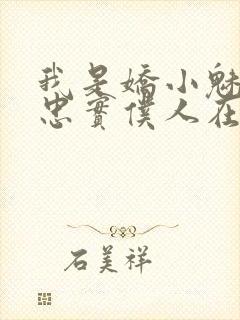 我是嬌小魅
忠實僕人在
石美祥